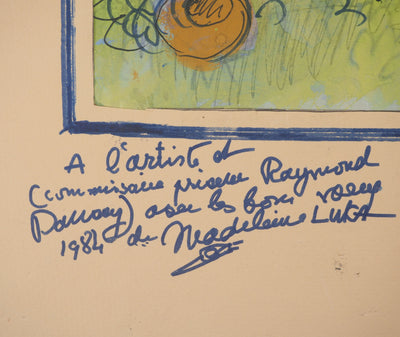 A l'artiste et
(commissaire priseur Raymond
) avec les bons voeux
1984 de Madeleine LUKA